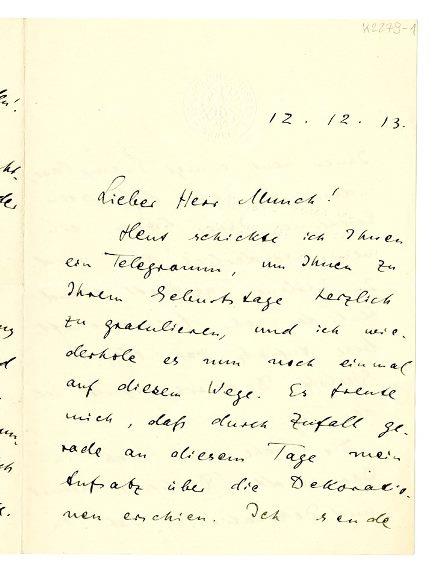 K2279-1
12. 12. 13.
Lieber Herr Munch!
Heut schickte ich Ihnen
ein Telegramm, um Ihnen zu
Ihrem Geburtstage herzlich
zu gratulieren, und ich wie-
derhole es nun noch einmal
auf diesem Wege. Es freute
mich, daß durch Zufall ge-
rade an diesem Tage mein
Aufsatz über die Dekoratio-
nen erschien. Ich sende